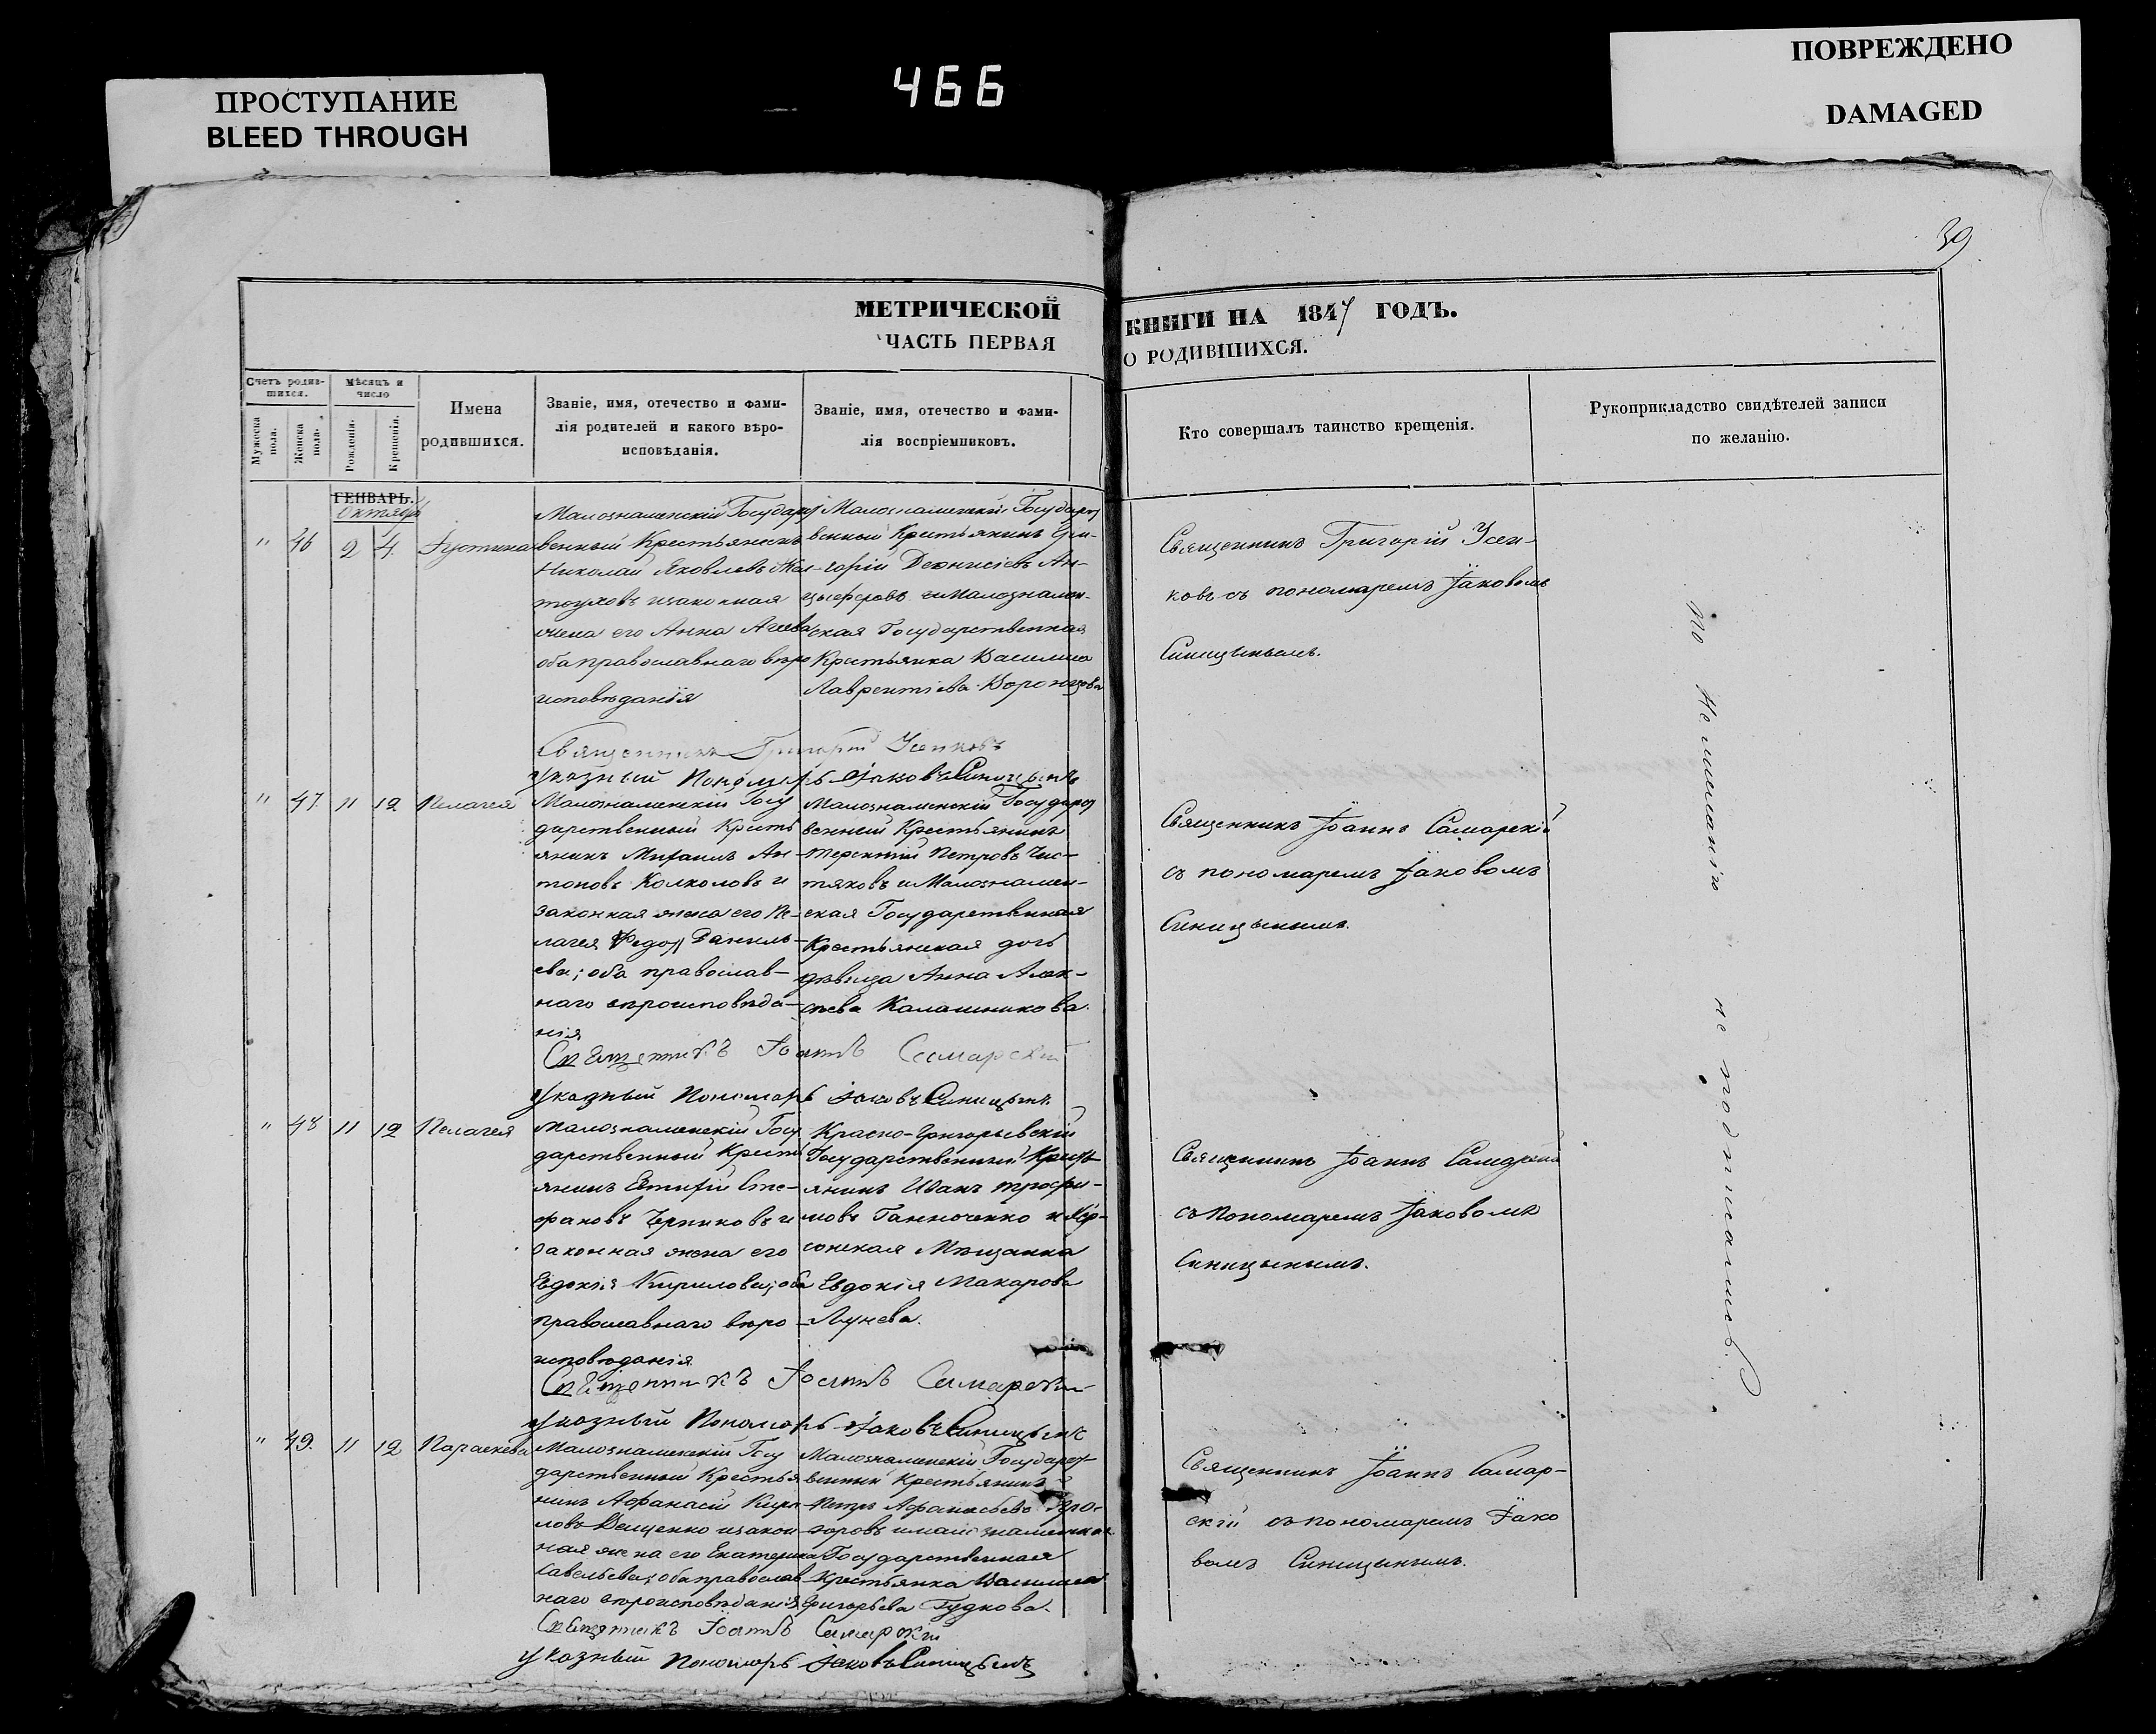 ПРОСТУПАНИЕ
BLEED THROUGH
466
ПОВРЕЖДЕНО
DAMAGED
39
МЕТРИЧЕСКОЙ КНИГИ НА 1847 ГОДЪ.
ЧАСТЬ ПЕРВАЯ О РОДИВШИХСЯ.
Счетъ родив-
шихся.
Мужеска
пола.
Женска
пола.
Мѣсяцъ и
число
Рожденія.
Крещенія.
Имена
родившихся.
Званіе, имя, отечество и фами-
лія родителей и какого вѣро-
исповѣданія.
Званіе, имя, отечество и фами-
лія воспріемниковъ.
Кто совершалъ таинство крещенія.
Рукоприкладство свидѣтелей записи
по желанію.
ГЕНВАРЬ.
Октябрь
" 46 2 4 Іустина
Малознаменскій Государст
венный Крестьянинъ
Николай Яковлевъ
законная
жена его Анна
оба православнаго вѣро
исповѣданія
Малознаменскій Государст
венный Крестьянинъ Гри-
горій Деонисіевъ Ан-
цыферовъ и Малознамен-
ская Государственная
Крестьянка Василиса
Лаврентіева Воронцова
Священникъ Григорій Усен-
ковъ съ пономаремъ Іаковомъ
Синицынымъ.
Священникъ Григорій Усенковъ
указный Пономарь Іаковъ Синицынъ
" 47. 11 12 Пелагея
Малознаменскій Госу
дарственный Кресть
янинъ Михаилъ Ан-
тоновъ Колколовъ и
законная жена его Пе-
лагея Даниль-
ева; оба православ-
наго вѣроисповѣда-
нія
Малознаменскій Государст
венный Крестьянинъ
Терентій Петровъ Чис-
тяковъ и Малознамен-
ская Государственная
Крестьянская дочь
дѣвица Анна Алек-
сѣева Калашникова.
Священникъ Іоаннъ Самарскій
съ пономаремъ Іаковомъ
Синицынымъ.
Священникъ Іоаннъ Самарскій
указный Пономарь Іаковъ Синицынъ.
" 48 11 12 Пелагея
Малознаменскій Госу
дарственный Кресть
янинъ Евтифій Сте-
фановъ и
законная жена его
Евдокія Кирилова; оба
православнаго вѣро-
исповѣданія
Красно-Григорьевскій
Государственный Кресть
янинъ Иванъ Трофи-
мовъ Ганноченко и Хер-
сонская Мѣщанка
Евдокія Макарова
Лунева.
Священникъ Іоаннъ Самарскій
съ Пономаремъ Іаковомъ
Синицынымъ.
Священникъ Іоаннъ Самарскій
указный Пономарь Іаковъ Синицынъ
" 49. 11 12 Параскева
Малознаменскій Госу
дарственный Крестья
нинъ Афанасій Кири-
ловъ Деменко и закон
ная жена его Екатерина
Савельева; оба православ
наго вѣроисповѣданія
Малознаменскій Государст
венный Крестьянинъ
Петръ Афанасьевъ
и малознаменская
Государственная
Крестьянка Василиса
Григорьева Гудкова.
Священникъ Іоаннъ Самар-
скій съ пономаремъ Іако
вомъ Синицынымъ.
Священникъ Іоаннъ Самарскій
указный Пономарь Іаковъ Синицынъ
По желанію не подписались.